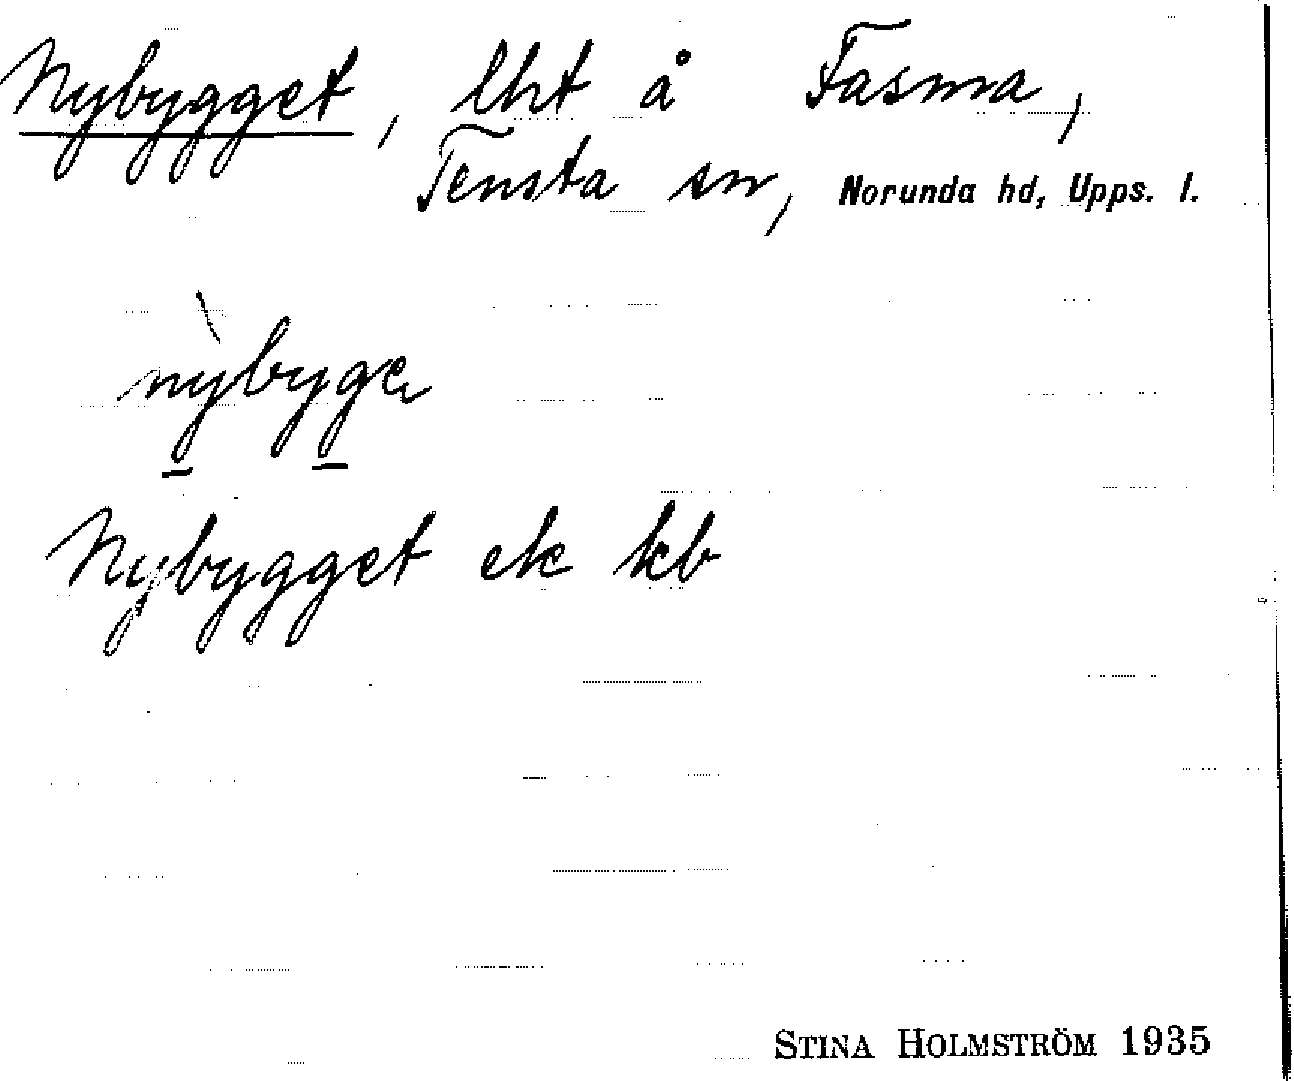 Nybygget, lht å Tasma,
Tensta sn, Norunda hd, Upps. l.
nỳbyge
Nybygget ek kb
STINA HOLMSTRÖM 1935